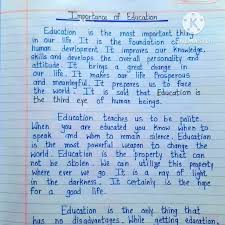 Importance of Education
Education is the most important thing
in our life. It is the foundation of
human development. It improves our knowledge,
skills and develops the overall personality and
attitude. It brings a great change in
our life. It makes our life prosperous
and meaningful. It prepares us to face
the world. It is said that Education is
the third eye of human beings.
Education teaches us to be polite.
When you are educated you know when to
speak and when to remain silence. Education
is the most powerful weapon to change the
world. Education is the property that can
not be stolen. We can utilize this property
where ever we go. It is a ray of light
in the darkness. It certainly is the hope
for a good life.
Education is the only thing that
has no disadvantages. While getting education,